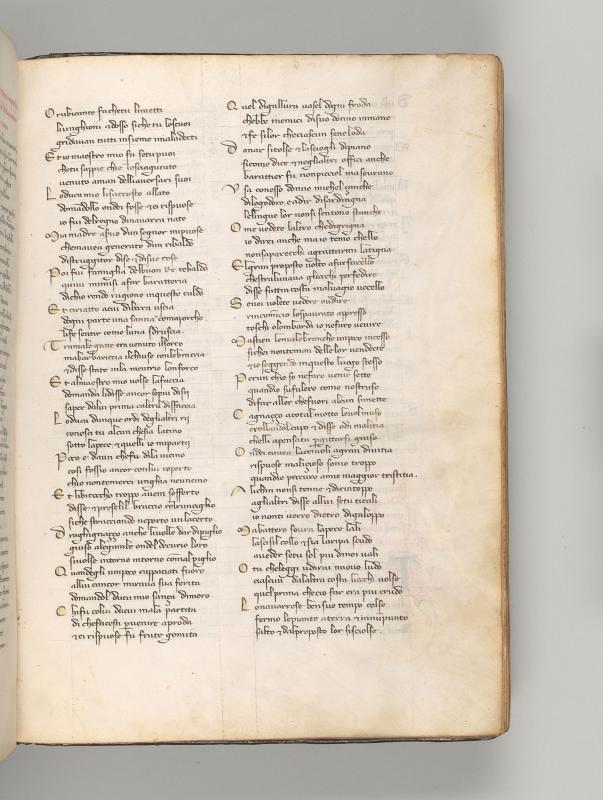 O rubicante fa chetu limetti
liunghioni adosso siche tu loscuoi
gridavan tutti insieme imaladecti
E t io maestro mio fa setu puoi
che tu sappie chie losciagurato
venuto aman delli aversari suoi
L o duca mio lisaccosto allato
domandollo ondei fosse & ei rispuose
io fui delregno dinavarra nato
M ia madre aservo dun segnor mipuose
che mavea generato dun ribaldo
distruggitor dise & disue cose
P oi fui famiglia del buon re tebaldo
quivi mimisi afar baratteria
dicho rendo ragione inquesto caldo
E t ciriatto acui dibocca uscia
dogni parte una sanna comaporcho
life sentir come luna sdruscia
T ra male gatte era venuto ilsorco
ma barbariccia ilchiuse conle braccia
& disse state inla mentrio lonforco
E t almaestro mio volse lafaccia
domandi li disse ancor sepiu disij
saper dalui prima caltri disfaccia
L o duca dunque or di deglialtri rij
conosci tu alcun chesia latino
sotto lapece & quelli io miparti
P oco e daun chefu dila vicino
cosi fossio ancor conlui coperto
chio nontemerei unghia neuncino
E t libicoccho troppo avem sofferto
disse & preselil braccio colrunciglio
siche stracciando neporto unlacerto
D raghignaccio anche livolle dar dipiglio
giuso alegambe ondel decurio loro
sivolse intorno intorno conmal piglio
Q uandegli unpoco rappaciati fuoro
allui cancor mirava sua ferita
domandol duca mio sanza dimoro
C hi fu colui dacui mala partita
di chefacesti per venire aproda
& ei rispuose fu frate gomita
Q uel digallura vasel dogni froda
chebbe inemici disuo donno inmano
& fe silor checiascun seneloda
D anar sitolse & lasciogli dipiano
sicome dice & neglialtri offici anche
barattier fu non picciol ma sovrano
U sa conesso donno michel çanche
dilogodoro & adir disardigna
lelingue lor nonsi sentono stanche
O me vedete laltro chedigrigna
io direi anche ma io temo chello
nonsapparecchi agrattarmi latigna
E l gran proposto volto afarfarello
chestralunava gliocchi perfedire
disse fatti incosta malvagio uccello
S e voi volete vedere oudire
rincomincio lospaurato appresso
toschi olombardi io nefaro venire
M a stien lemalebranche unpoco incesso
siche nonteman dellelor vendecte
& io seggendo inquesto luogo stesso
P er un chio so nefaro venir sette
quandio sufulero come nostruso
difar allor chefuori alcun simette
C agnaçço acotal motto levol muso
crollandol capo & disse odi malitia
chelli apensata per gittarsi giuso
O ndei cauea lacciuoli agran divitia
rispuose malicioso sonio troppo
quandio procuro amie maggior trestitia.
A lichin nonsi tenne & dirintoppo
aglialtri disse allui setu ticali
io nonti verro dietro digaloppo
M a battero sovra lapece lali
lascisil collo & sia laripa scudo
aveder setu sol piu dinoi vali
O tu cheleggi udirai nuovo ludo
ciascun dalaltra costa liocchi volse
quel prima checio far era piu crudo
L o navarrese ben suo tempo colse
fermo lepiante aterra & innunpunto
salto & dalproposto lor sisciolse.